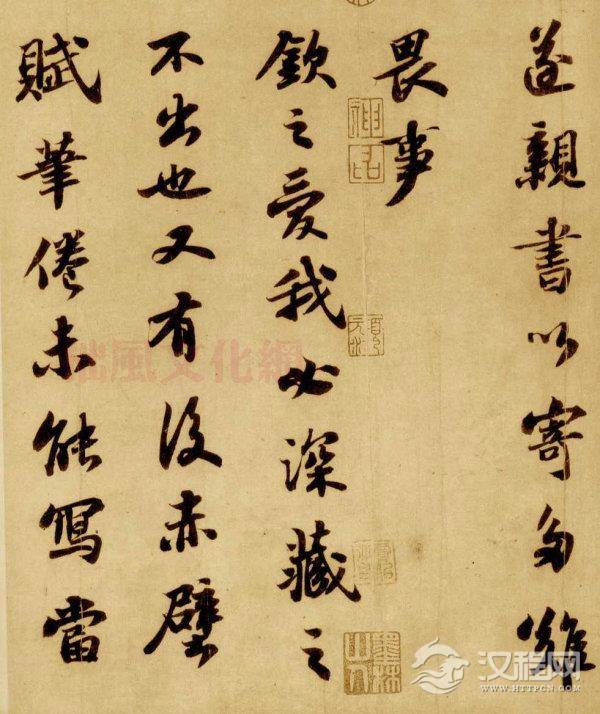 遂親書以寄多難
畏事
欽之愛我必深藏之
不出也又有後赤壁
賦筆倦未能寫當
拙風文化網
汉程网
WWW.HTTPCN.COM